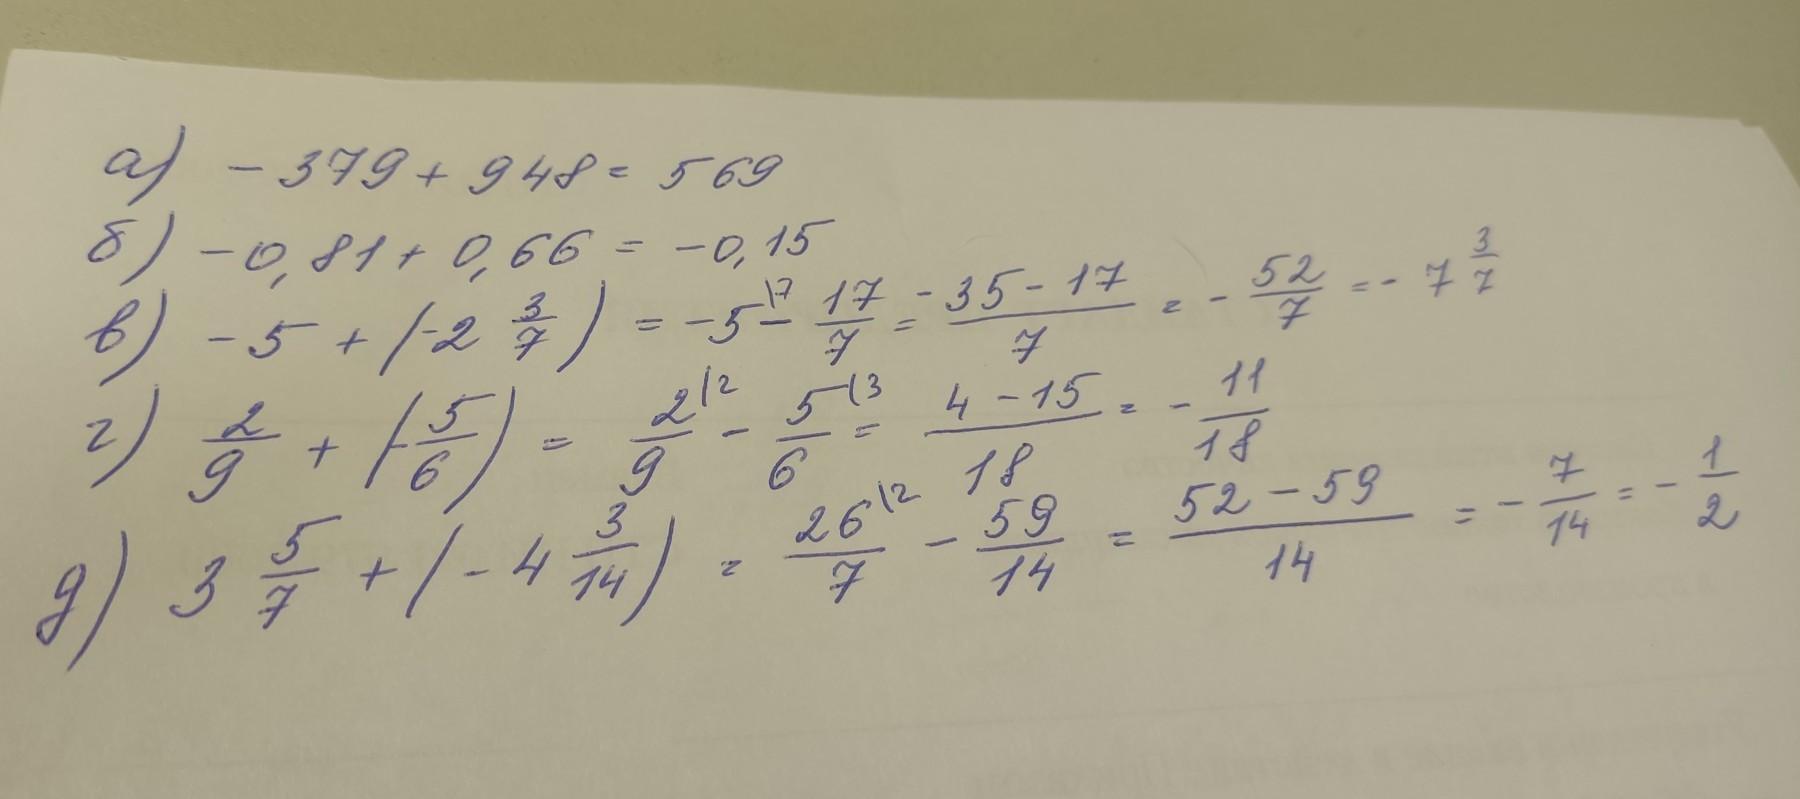 а) - 379 + 948 = 569
б) - 0,81 + 0,66 = -0,15
в) -5 + (-2 3/7) = -5\7 - 17/7 = -35-17/7 = - 52/7 = - 7 3/7
г) 2/9 + (-5/6) = 2\2/9 - 5\3/6 = 4-15/18 = - 11/18
д) 3 5/7 + (-4 3/14) = 26\2/7 - 59/14 = 52-59/14 = - 7/14 = - 1/2